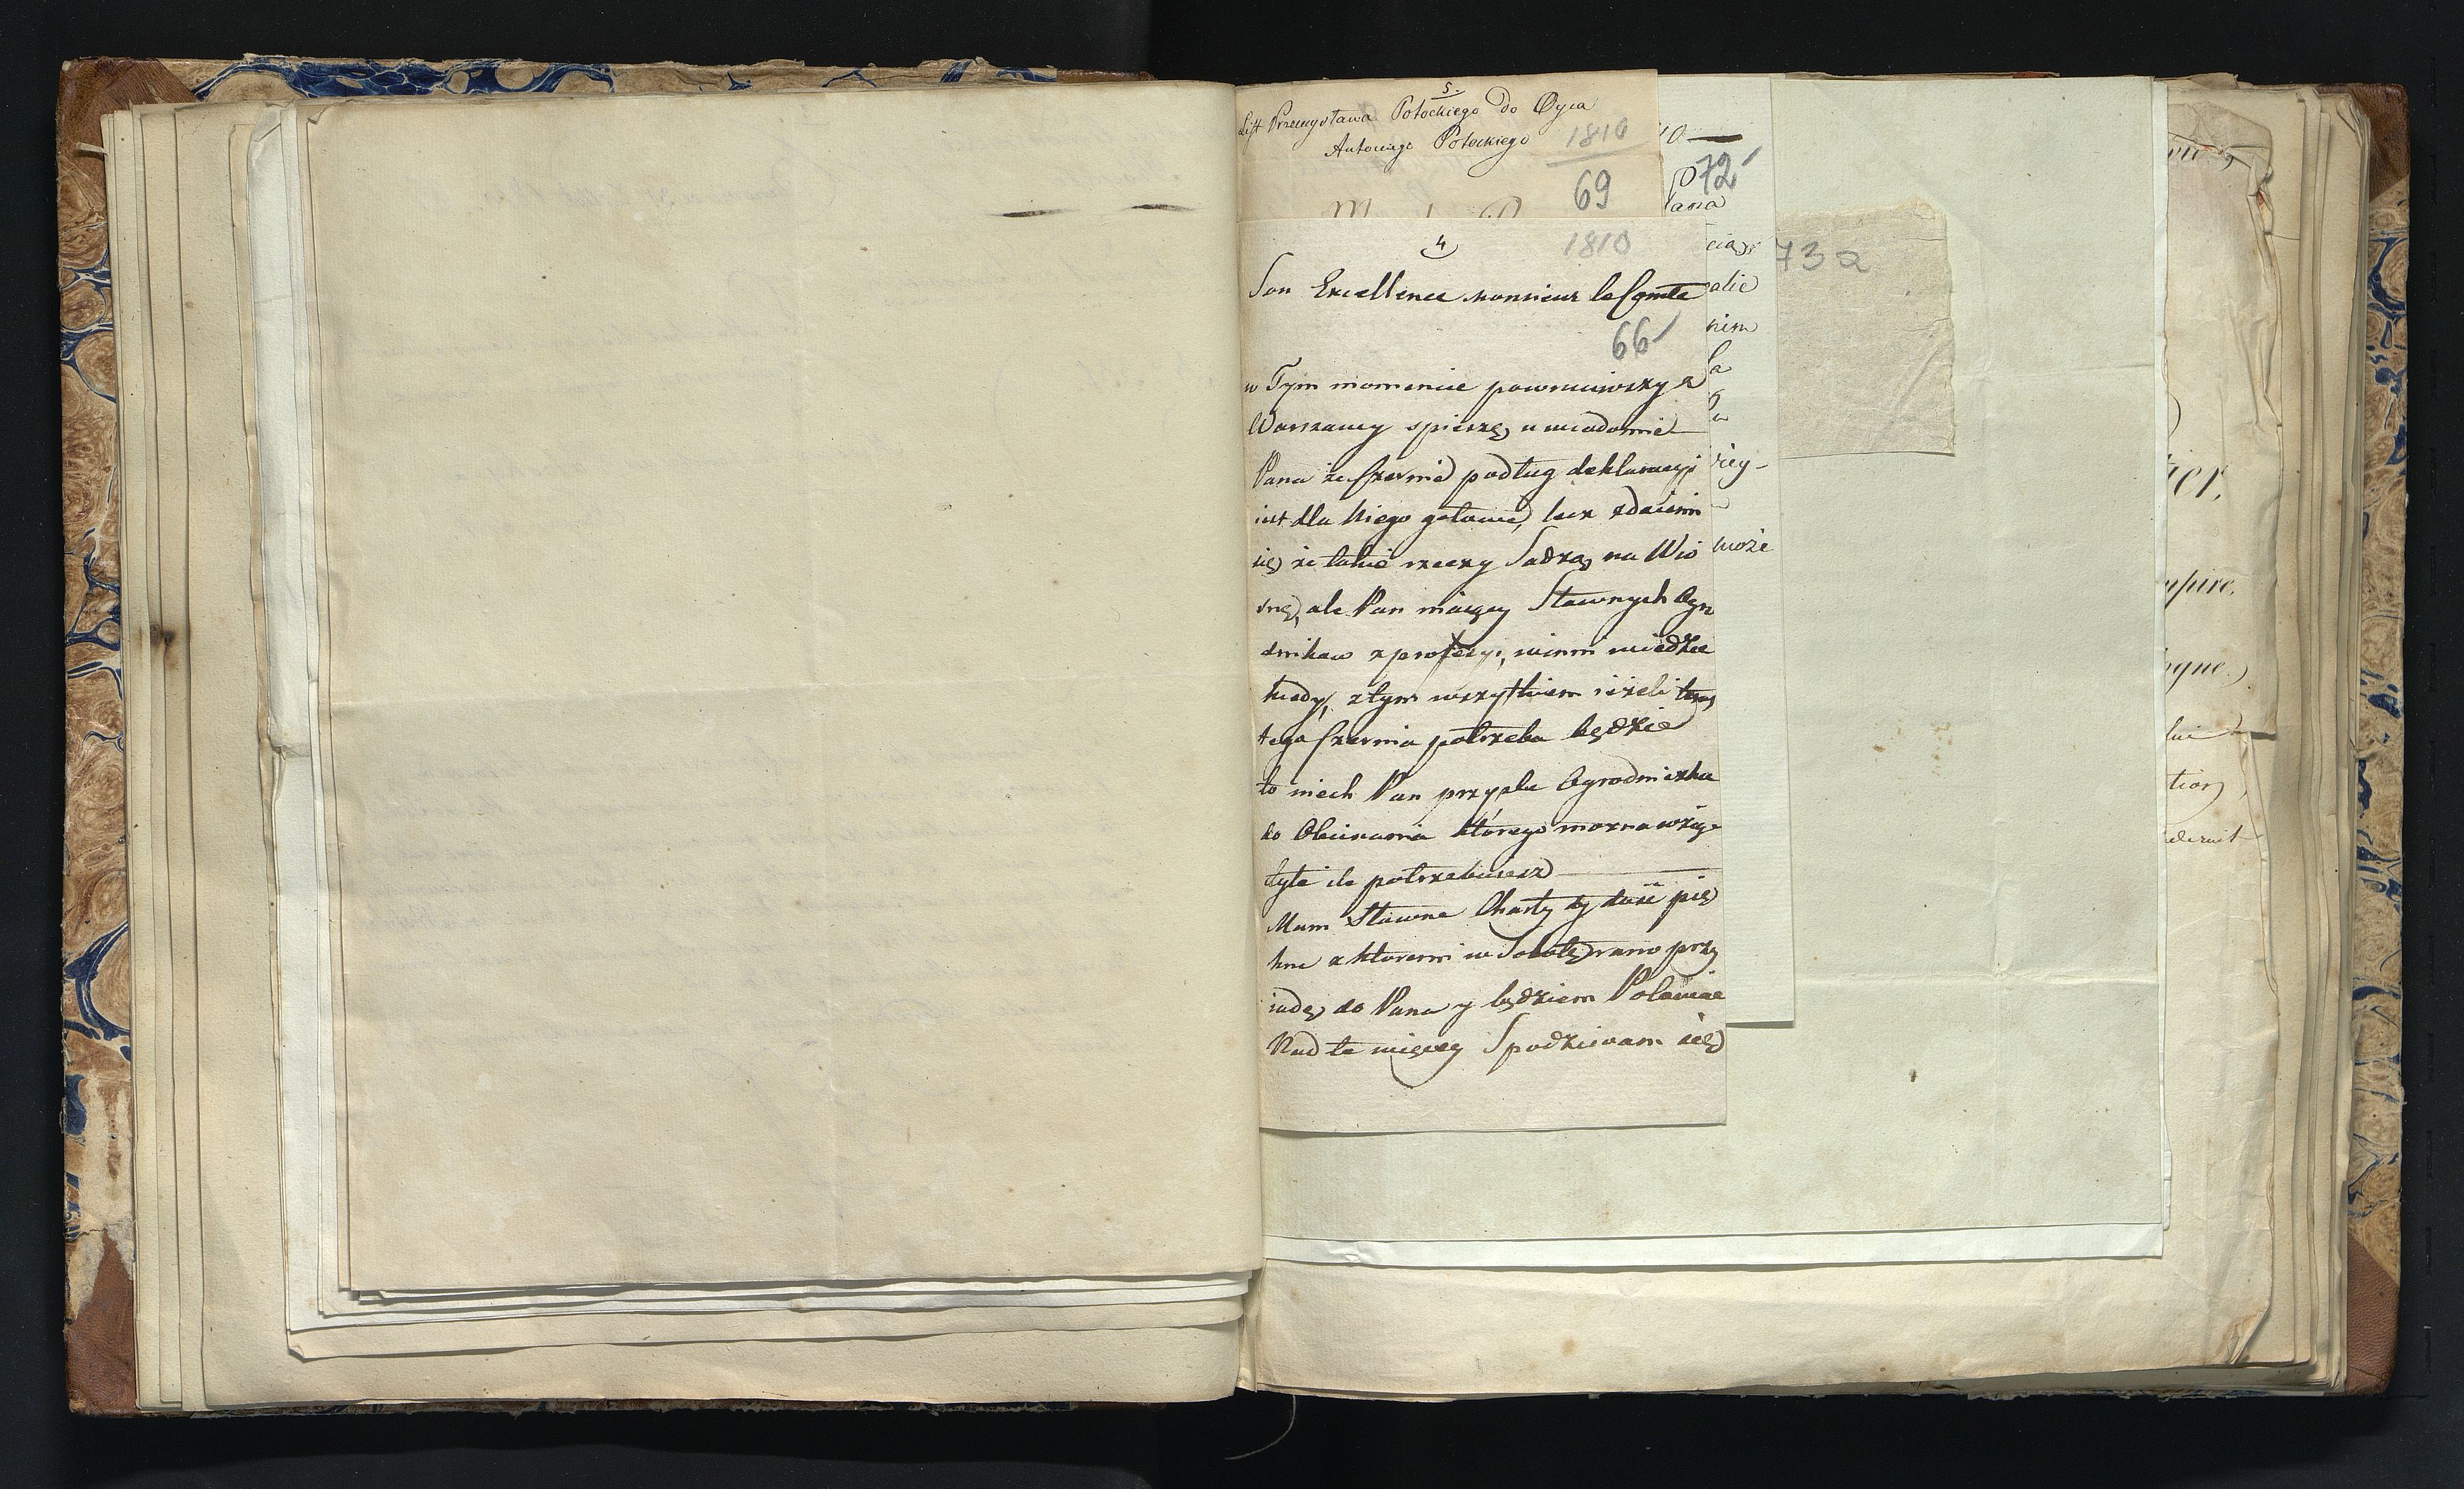 5.
List Przemysława Potockiego do Oyca
Antoniego Potockiego 1810
69
4
1810
Son Excellence monsieur le Comte
66
w Tym momencie powruciwszy z
Warszawy spieszę uwiadomić
Pana że Czernie podług deklaracyi
iest dla Niego gotowe, lecz zdaiemi
się że takie rzeczy Sadzą na Wio
snę, ale Pan maiący Sławnych Ogro
dnikow z profesyi, winni wiedzieć
kiedy, z tym wszystkiem ieżeli teraz
tego Czernia potrzeba będzie
to niech Pan przyśle Ogrodniczka
do Obierania którego można wziąć
tyle ile potrzebuiesz
Mam Sławne Charty są dość pię
kne z ktoremi w Sobotę rano przy
iadę do Pana y będziem Polować
Nad to więcey Spodziewam się
72
lana
cią
alie
niem
może
73a
tier,
mpire,
ogne.
tion,